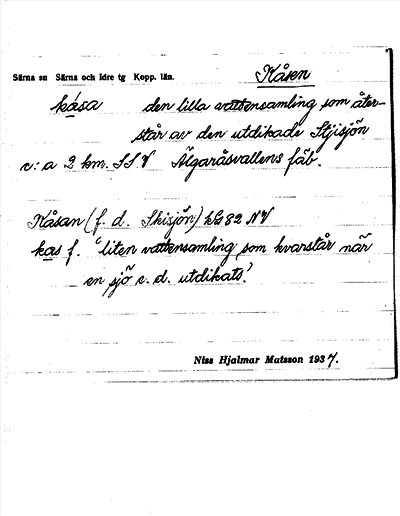 Särna sn Särna och Idre tg Kopp. län. Kåsen
kåsa den lilla vattensamling som åter-
står av den utdikade Stjisjön
c:a 2 km. SSV Älgaråsvallens fäb.
Kåsan (f. d. Skisjön) 82 NV
kas f. "liten vattensamling som kvarstår när
en sjö e. d. utdikats".
Niss Hjalmar Matsson 1937.